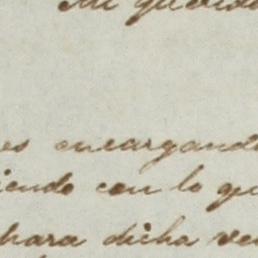 Mi querido
es encargando
iendo con lo qu
hara dicha ve